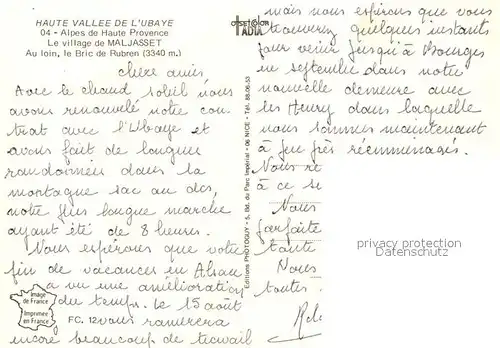 HAUTE VALLEE DE L'UBAYE
04 - Alpes de Haute Provence
Le village de MALJASSET
Au loin, le Bric de Rubren (3340 m.)
chers amis,
Avec le chaud soleil nous
avons renouvelé notre con-
trat avec l'Ubaye et
avons fait de longues
randonnées dans la
montagne sac au dos,
notre plus longue marche
ayant été de 8 heures.
Nous espérons que votre
fin de vacances en Alsace
a vu une amélioration
du temps. Le 15 août
vous ramènera
encore beaucoup de travail
Image de France
Imprimée en France
FC. 12
OFFSET COLOR
IADIA
Editions PHOTOGUY - 5, Bd. du Parc Impérial - 06 NICE - Tél. 88-06-53
mais nous espérons que vous
trouverez quelques instants
pour venir jusqu'à Bourges
en septembre dans notre
nouvelle demeure avec
les Henry dans laquelle
nous sommes maintenant
à peu près réemménagés.
Nous re
à ce se
Nous
parfaite
toute
Nous
toutes
privacy protection
Datenschutz